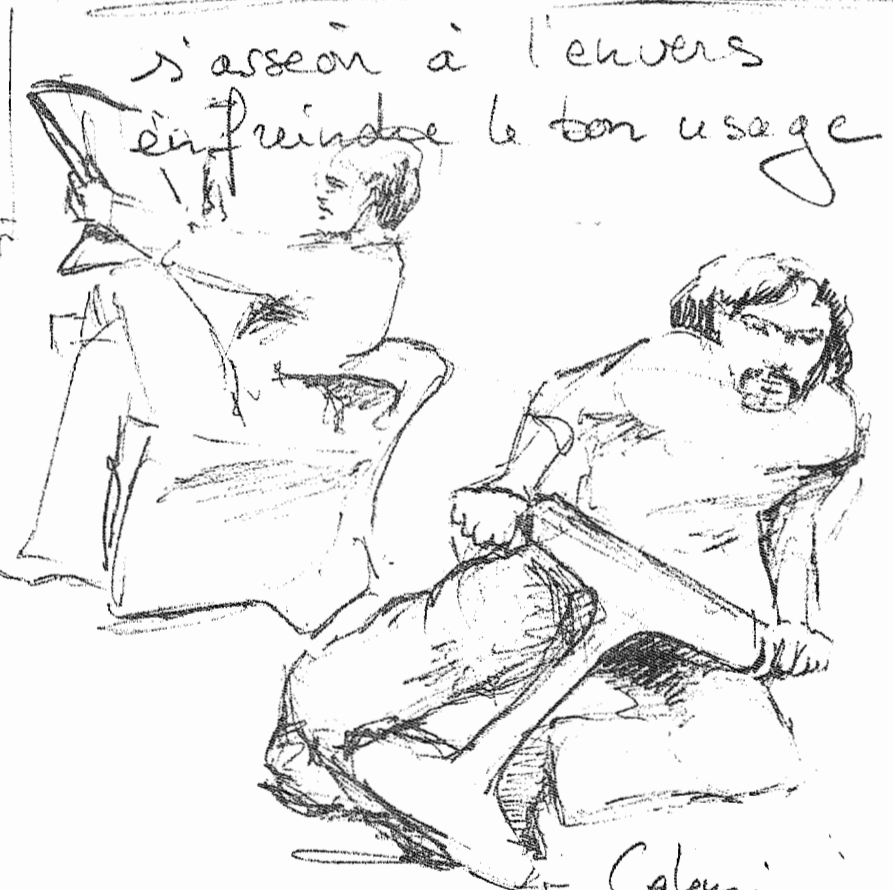 s'asseoir à l'envers
enfreindre le bon usage